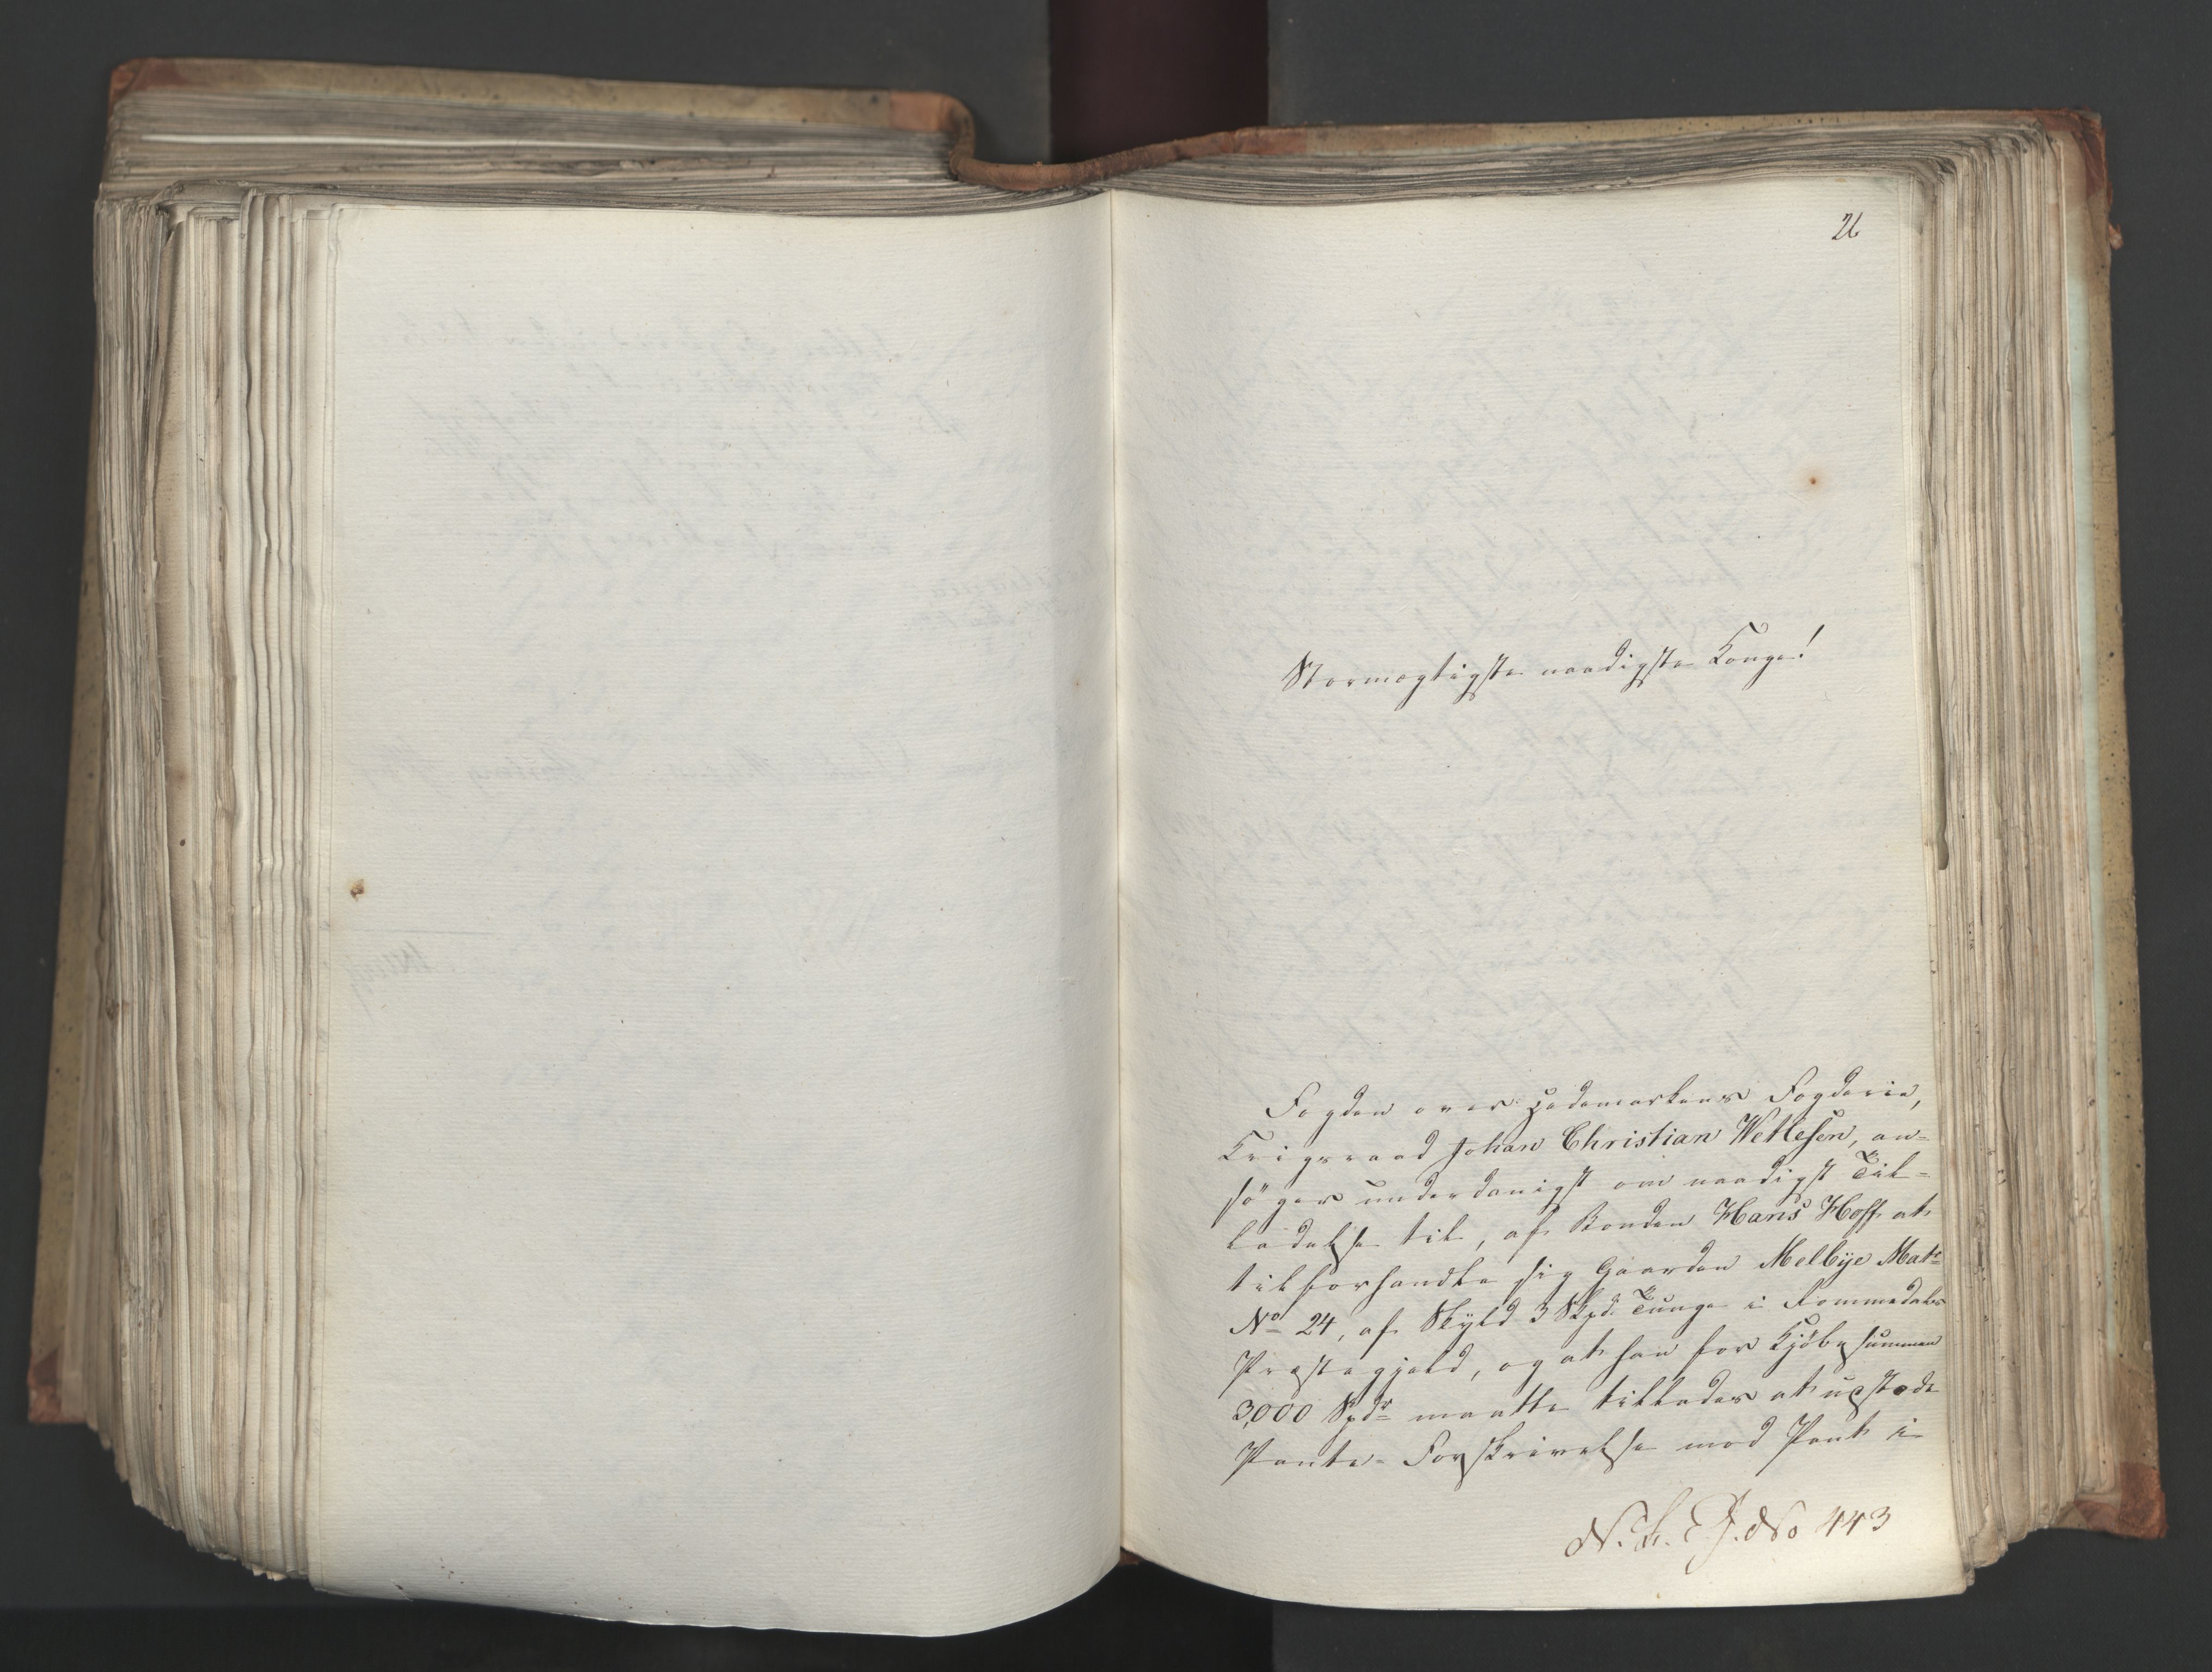 26
Stormægtigste naadigste Konge!
Fogden over Hedemarkens Fogderie,
Krigsraad Johan Christian Wetlesen, an-
søger underdanigst om naadigst Til-
ladelse til, af Bonden Hans Hoff at
tilforhandle sig Gaarden Melbye Mat:
No 24, af Skyld 3 Skpd. Tunge i Rommedals
Præstegjeld, og at han for Kjöbesummen
3,000 Spdr maatte tillades at udstæde
Pante-Forskrivelse mod Pant i
No 443